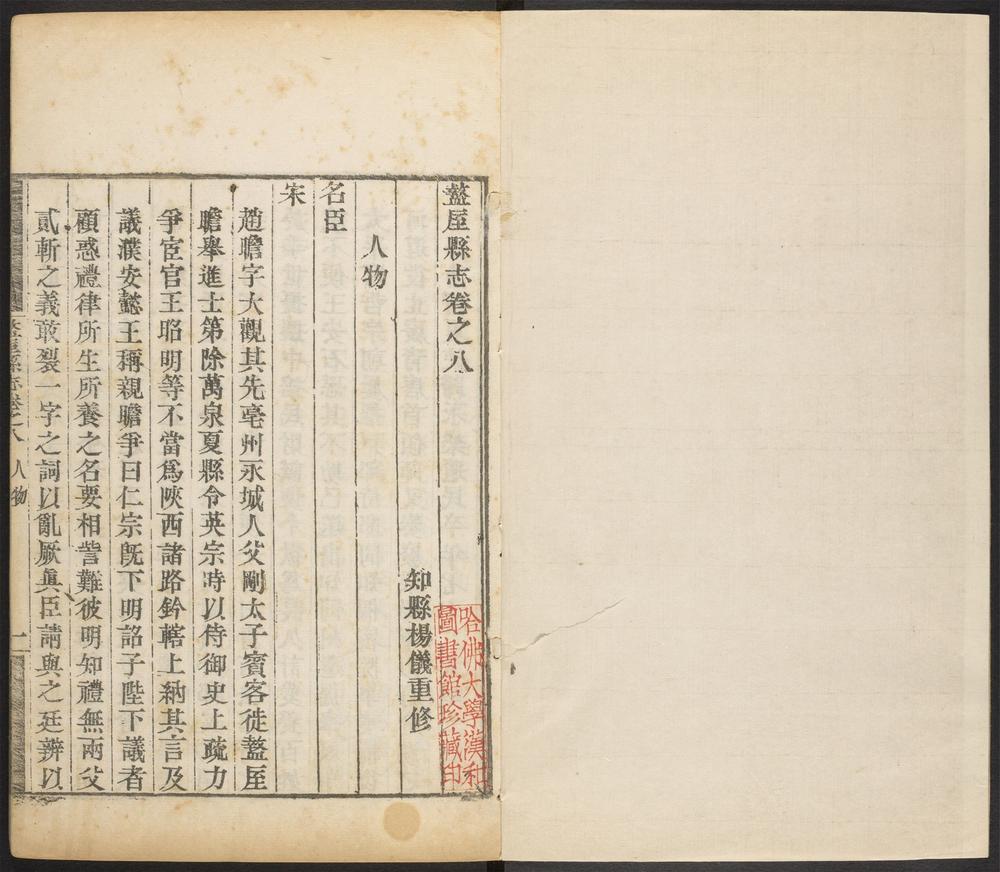 盩厔縣志卷之八
知縣楊儀重修
人物
名臣
宋
趙瞻字大觀其先亳州永城人父剛太子賓客徙盩厔
瞻舉進士第除萬泉夏縣令英宗時以侍御史上疏力
爭宦官王昭明等不當爲陝西諸路鈐轄上納其言及
議濮安懿王稱親瞻爭曰仁宗旣下明詔子陛下議者
顧惑禮律所生所養之名要相訾難彼明知禮無兩父
貳斬之義敢裂一字之詞以亂厥眞臣請與之廷辨以
盩厔縣志卷之八 人物 一
哈佛大學漢和
圖書館珍藏印